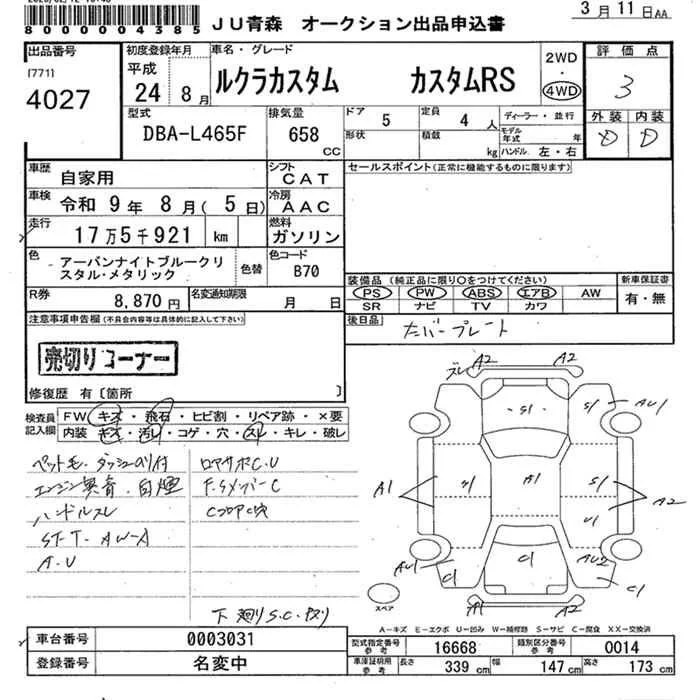 3月11日AA
800004385
JU青森 オークション出品申込書
出品番号
[771]
4027
初度登録年月
平成
24 8月
車名・グレード
ルクラカスタム カスタムRS
2WD
・
4WD
評価点
3
型式
DBA-L465F
排気量
658
CC
ドア
5
定員
4人
形状
積載
kg
ディーラー・並行
モデル年式 年
ハンドル 左・右
外装 内装
D D
車歴
自家用
シフト
CAT
車検
令和 9年 8月( 5日)
冷房
AAC
走行
17万5千921 km
燃料
ガソリン
色
アーバンナイトブルークリスタル・メタリック
色替
色コード
B70
R券
8,870円
名変通知期限
月 日
セールスポイント(正常に機能するものに限ります)
装備品 (純正品に限り○をつけてください)
PS PW ABS エアB AW
SR ナビ TV カワ
新車保証書
有・無
後日品
ナンバープレート
注意事項申告欄(不具合内容等は具体的に記入して下さい)
売切りコーナー
修復歴 有〔箇所 〕
検査員記入欄
FW キズ・飛石・ヒビ割・リペア跡・×要
内装 キズ・汚レ・コゲ・穴・スレ・キレ・破レ
ペット毛・ダッシュのり付
エンジン異音・白煙
ハンドルスレ
ST-T・AW-A
A・U
ロアサポC.U
F.SメンバーC
CフロアC穴
下廻りS.C・サビ
A2 A2
S1 S1 AU1
A1 S1 A1 S1 A2
U1
AU1 C1 C1 AU2 C1
A1 A2
スペア
A-キズ E-エクボ U-凹み W-補修跡 S-サビ C-腐食 XX-交換済
車台番号
0003031
登録番号
名変中
型式指定番号
参考
16668
類別区分番号
参考
0014
車庫証明用
参考
長さ
339cm
幅
147cm
高さ
173cm